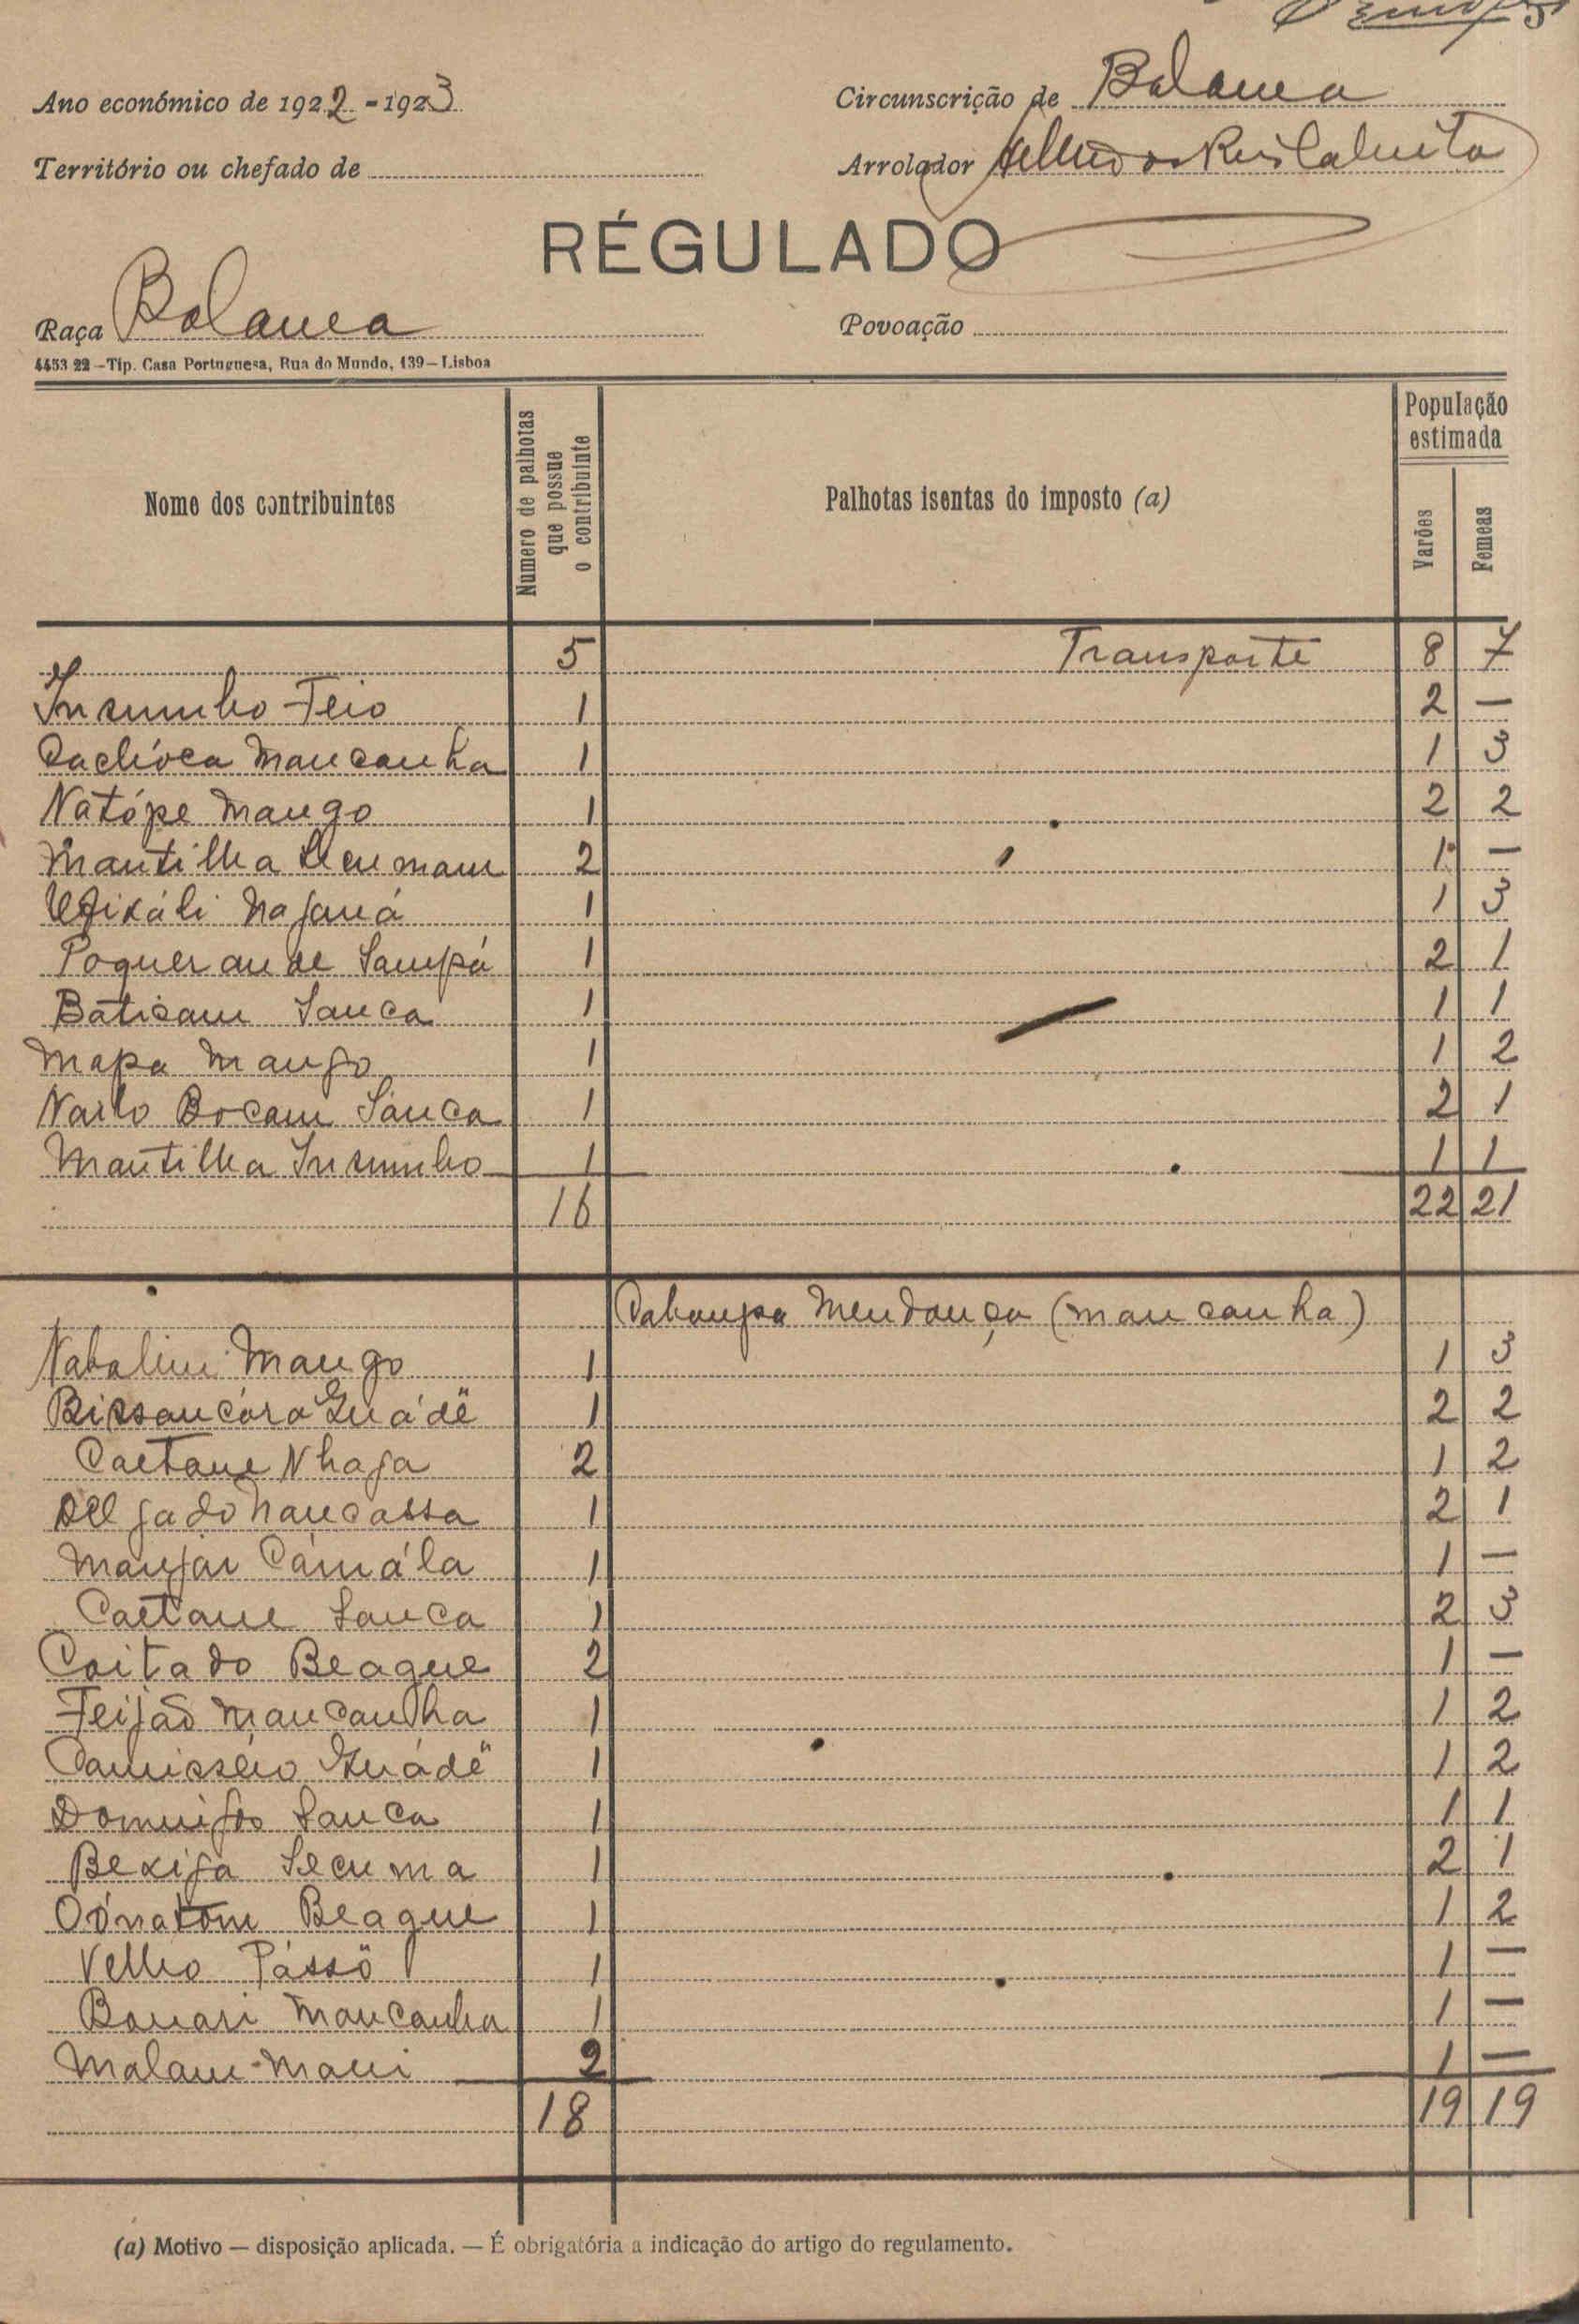 Ano económico de 1922-1923
Circunscrição de Bolama
Território ou chefado de
Arrolador
RÉGULADO
Raça Balanta
Povoação
4453 22 — Tip. Casa Portuguesa, Rua do Mundo, 139 — Lisboa
Nome dos contribuintes
Numero de palhotas que possue o contribuinte
Palhotas isentas do imposto (a)
População estimada
Varões
Femeas
5 Transporte 8 7
Insumbo Feio 1 2 —
Cachióca Mancanha 1 1 3
Natópe Mango 1 2 2
Mantilha 2 1 —
1 1 3
Sampá 1 2 1
Baticam Sanca 1 1 1
Mapa Mango 1 1 2
Bocam Sanca 1 2 1
Mantilha Insumbo 1 1 1
16 22 21
Mendonça (mancanha)
Nabalim Mango 1 1 3
Bissancóra Guádê 1 2 2
Caetano Nhaga 2 1 2
Delgado Nancassa 1 2 1
Camála 1 1 —
Caetano Sanca 1 2 3
Coitado Beague 2 1 —
Feijão Mancanha 1 1 2
Guádê 1 1 2
Domingos Sanca 1 1 1
Bexiga Secuma 1 2 1
Beague 1 1 2
Velho Pássô 1 1 —
Mancanha 1 1 —
Malam Mani 2 1 —
18 19 19
(a) Motivo — disposição aplicada. — É obrigatória a indicação do artigo do regulamento.